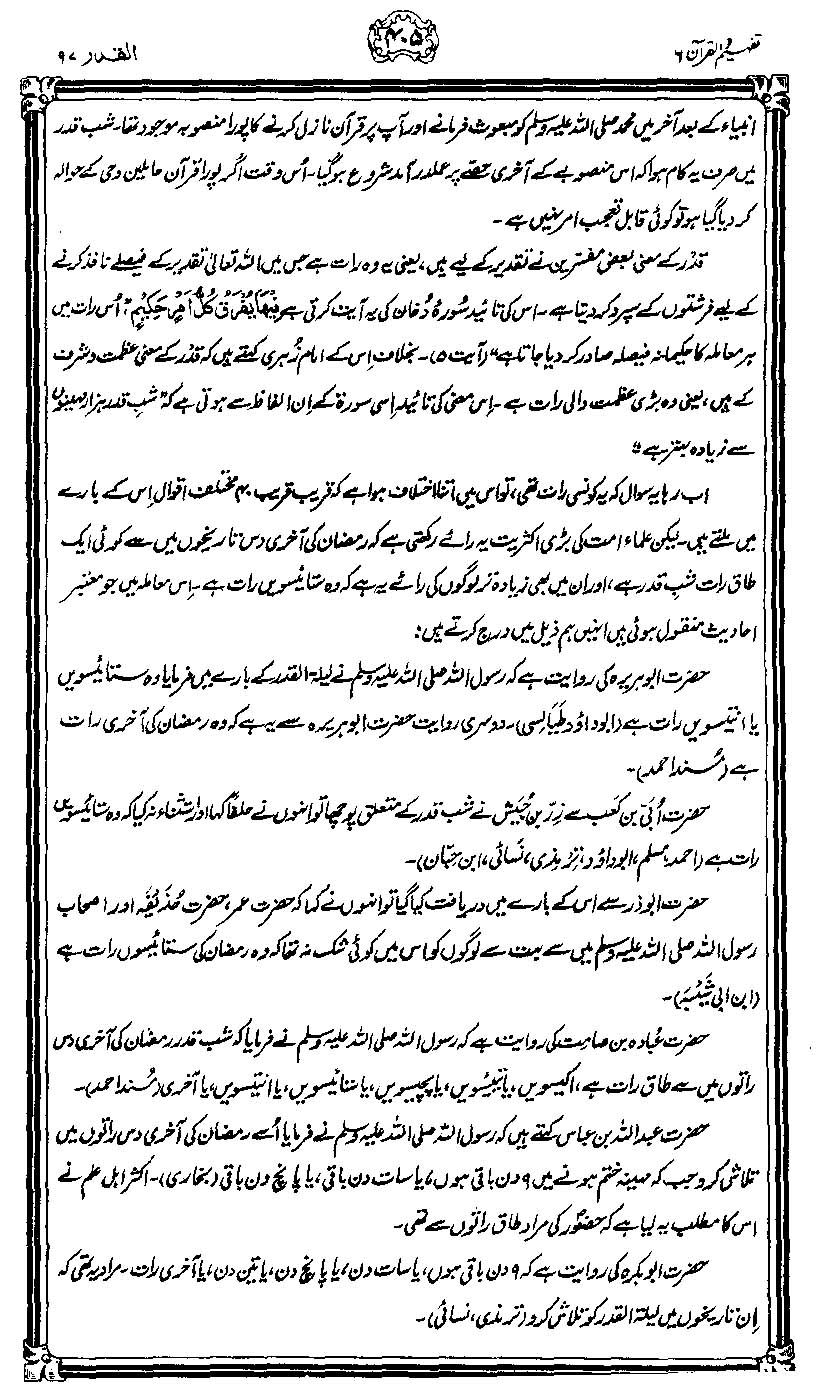 تفہیم القرآن ۶
۴۰۵
القدر ۹۷
انبیاء کے بعد آخر میں محمد صلی اللہ علیہ وسلم کو مبعوث فرمانے اور آپ پر قرآن نازل کرنے کا پورا منصوبہ موجود تھا۔ شب قدر
میں صرف یہ کام ہوا کہ اس منصوبے کے آخری حصّے پر عملدرآمد شروع ہو گیا۔ اُس وقت اگر پورا قرآن حاملین وحی کے حوالہ
کر دیا گیا ہو تو کوئی قابل تعجب امر نہیں ہے۔
قَدْر کے معنی بعض مفسّرین نے تقدیر کے لیے ہیں، یعنی یہ وہ رات ہے جس میں اللہ تعالیٰ تقدیر کے فیصلے نافذ کرنے
کے لیے فرشتوں کے سپرد کر دیتا ہے۔ اس کی تائید سورۂ دُخان کی یہ آیت کرتی ہے فِيْهَا يُفْرَقُ كُلُّ اَمْرٍ حَكِيْمٍ، ”اُس رات میں
ہر معاملہ کا حکیمانہ فیصلہ صادر کر دیا جاتا ہے“ (آیت ۵)۔ بخلاف اِس کے امام زُہری کہتے ہیں کہ قَدْر کے معنی عظمت و شرف
کے ہیں، یعنی وہ بڑی عظمت والی رات ہے۔ اِس معنی کی تائید اِسی سورۃ کے اِن الفاظ سے ہوتی ہے کہ ”شبِ قدر ہزار مہینوں
سے زیادہ بہتر ہے“
اب رہا یہ سوال کہ یہ کونسی رات تھی، تو اس میں اتنا اختلاف ہوا ہے کہ قریب قریب ۴۰ مختلف اقوال اِس کے بارے
میں ملتے ہیں۔ لیکن علماء امت کی بڑی اکثریت یہ رائے رکھتی ہے کہ رمضان کی آخری دس تاریخوں میں سے کوئی ایک
طاق رات شبِ قدر ہے، اور ان میں بھی زیادہ تر لوگوں کی رائے یہ ہے کہ وہ ستائیسویں رات ہے۔ اِس معاملہ میں جو معتبر
احادیث منقول ہوئی ہیں انہیں ہم ذیل میں درج کرتے ہیں:
حضرت ابوہریرہ کی روایت ہے کہ رسول اللہ صلی اللہ علیہ وسلم نے لیلۃ القدر کے بارے میں فرمایا وہ ستائیسویں
یا انتیسویں رات ہے (ابوداؤد طیالسی)۔ دوسری روایت حضرت ابوہریرہ سے یہ ہے کہ وہ رمضان کی آخری رات
ہے (مُسند احمد)۔
حضرت اُبَیّ بن کَعب سے زِرّ بن حُبَیش نے شب قدر کے متعلق پوچھا تو انہوں نے حلفاً کہا اور استثناء نہ کیا کہ وہ ستائیسویں
رات ہے (احمد، مسلم، ابوداؤد، ترمذی، نَسائی، ابن حِبّان)۔
حضرت ابوذر سے اس کے بارے میں دریافت کیا گیا تو انہوں نے کہا کہ حضرت عمر، حضرت حُذَیفَہ اور اصحاب
رسول اللہ صلی اللہ علیہ وسلم میں سے بہت سے لوگوں کو اس میں کوئی شک نہ تھا کہ وہ رمضان کی ستائیسویں رات ہے
(ابن ابی شَیْبَہ)۔
حضرت عُبادہ بن صامِت کی روایت ہے کہ رسول اللہ صلی اللہ علیہ وسلم نے فرمایا کہ شب قدر رمضان کی آخری دس
راتوں میں سے طاق رات ہے، اکیسویں، یا تیئیسویں، یا پچیسویں، یا ستائیسویں، یا انتیسویں، یا آخری (مُسند احمد)۔
حضرت عبداللہ بن عباس کہتے ہیں کہ رسول اللہ صلی اللہ علیہ وسلم نے فرمایا اُسے رمضان کی آخری دس راتوں میں
تلاش کرو جب کہ مہینہ ختم ہونے میں ۹ دن باقی ہوں، یا سات دن باقی، یا پانچ دن باقی (بخاری)۔ اکثر اہل علم نے
اس کا مطلب یہ لیا ہے کہ حضورؐ کی مراد طاق راتوں سے تھی۔
حضرت ابوبکرہ کی روایت ہے کہ ۹ دن باقی ہوں، یا سات دن، یا پانچ دن، یا تین دن، یا آخری رات۔ مراد یہ تھی کہ
اِن تاریخوں میں لیلۃ القدر کو تلاش کرو (ترمذی، نسائی)۔